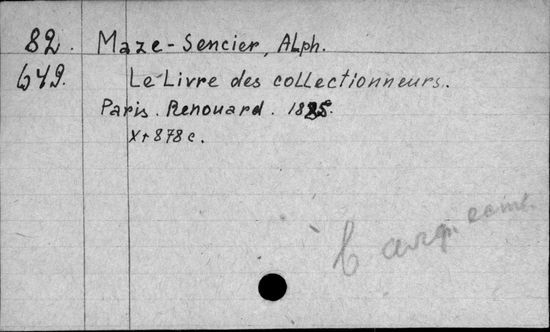 82. Maze-Sencier, Alph.
649. Le Livre des collectionneurs.
Paris. Renouard. 1885.
X+878 c.